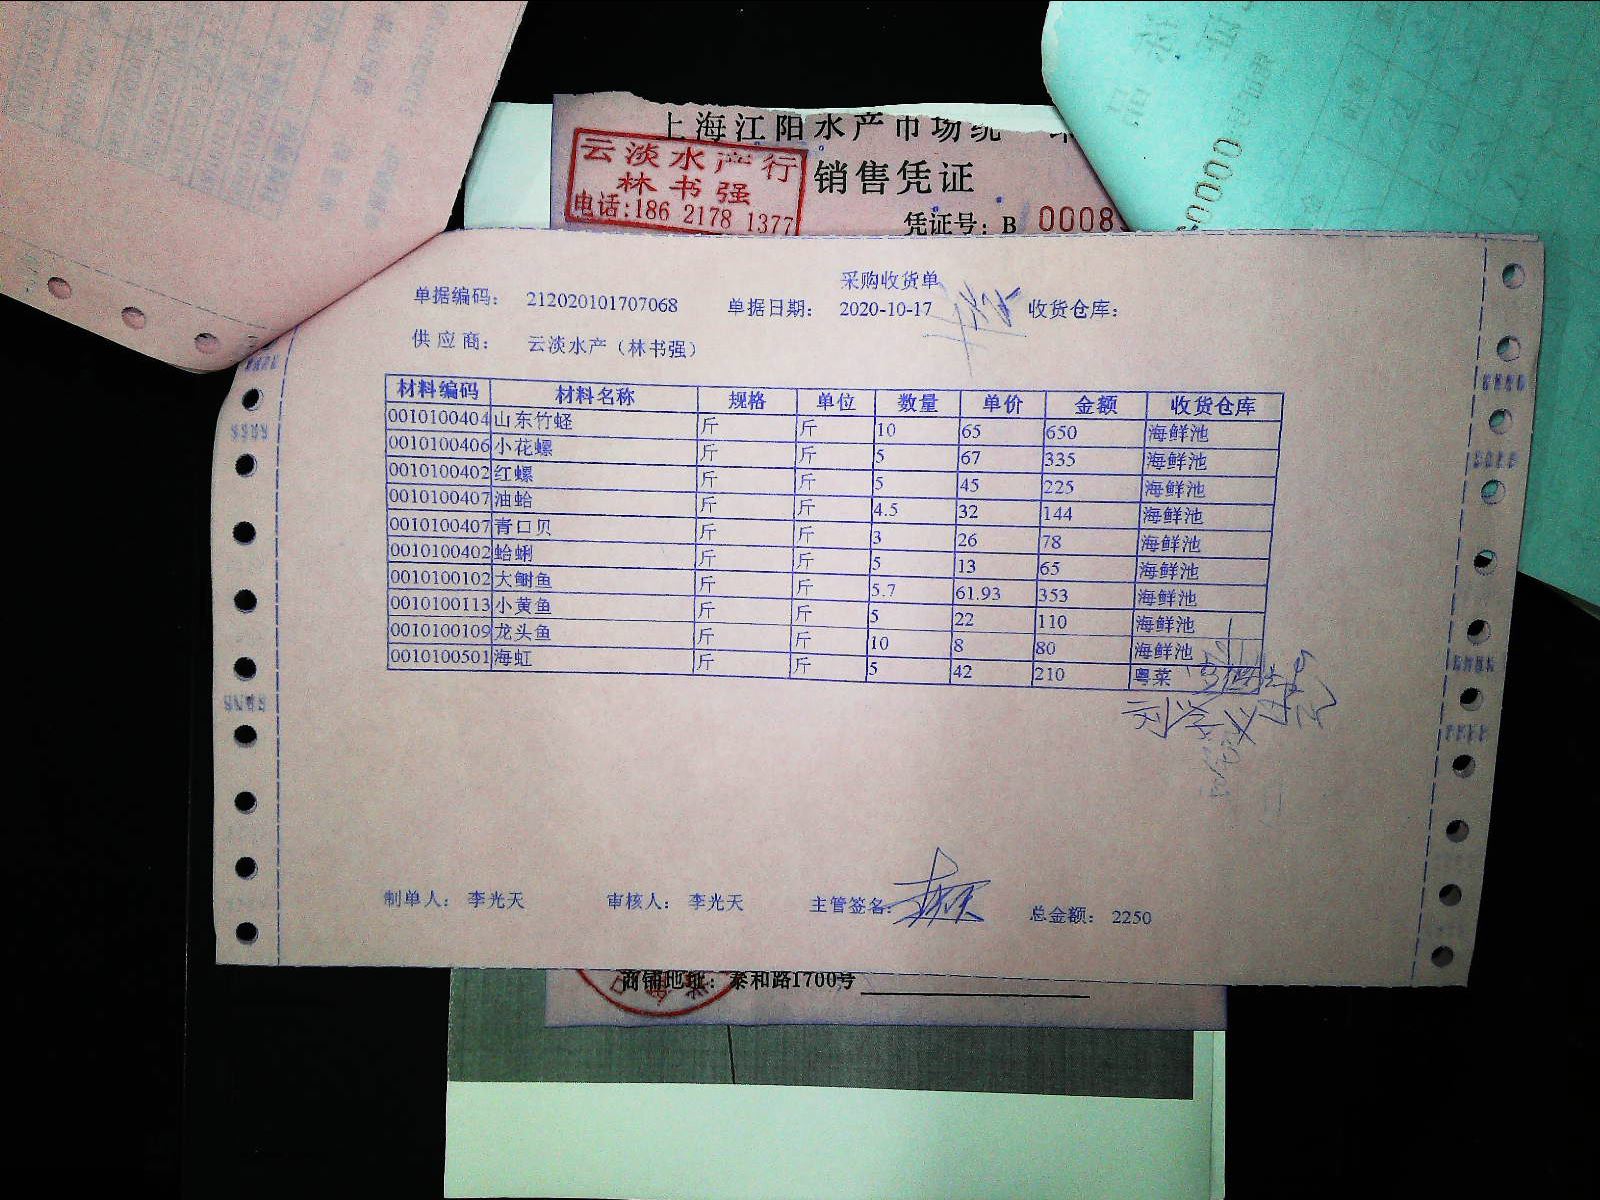 上海江阳水产市场统
云淡水产行
林书强
电话:186 2178 1377
销售凭证
凭证号: B 0008
采购收货单
单据编码: 212020101707068 单据日期: 2020-10-17 收货仓库:
供应商: 云淡水产（林书强）
材料编码 材料名称 规格 单位 数量 单价 金额 收货仓库
0010100404 山东竹蛏 斤 斤 10 65 650 海鲜池
0010100406 小花螺 斤 斤 5 67 335 海鲜池
0010100402 红螺 斤 斤 5 45 225 海鲜池
0010100407 油蛤 斤 斤 4.5 32 144 海鲜池
0010100407 青口贝 斤 斤 3 26 78 海鲜池
0010100402 蛤蜊 斤 斤 5 13 65 海鲜池
0010100102 大鲥鱼 斤 斤 5.7 61.93 353 海鲜池
0010100113 小黄鱼 斤 斤 5 22 110 海鲜池
0010100109 龙头鱼 斤 斤 10 8 80 海鲜池
0010100501 海虹 斤 斤 5 42 210 粤菜
制单人: 李光天 审核人: 李光天 主管签名: 总金额: 2250
商铺地址: 泰和路1700号